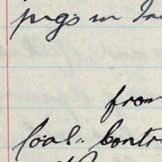 pigs in In
from
Coal. Contr